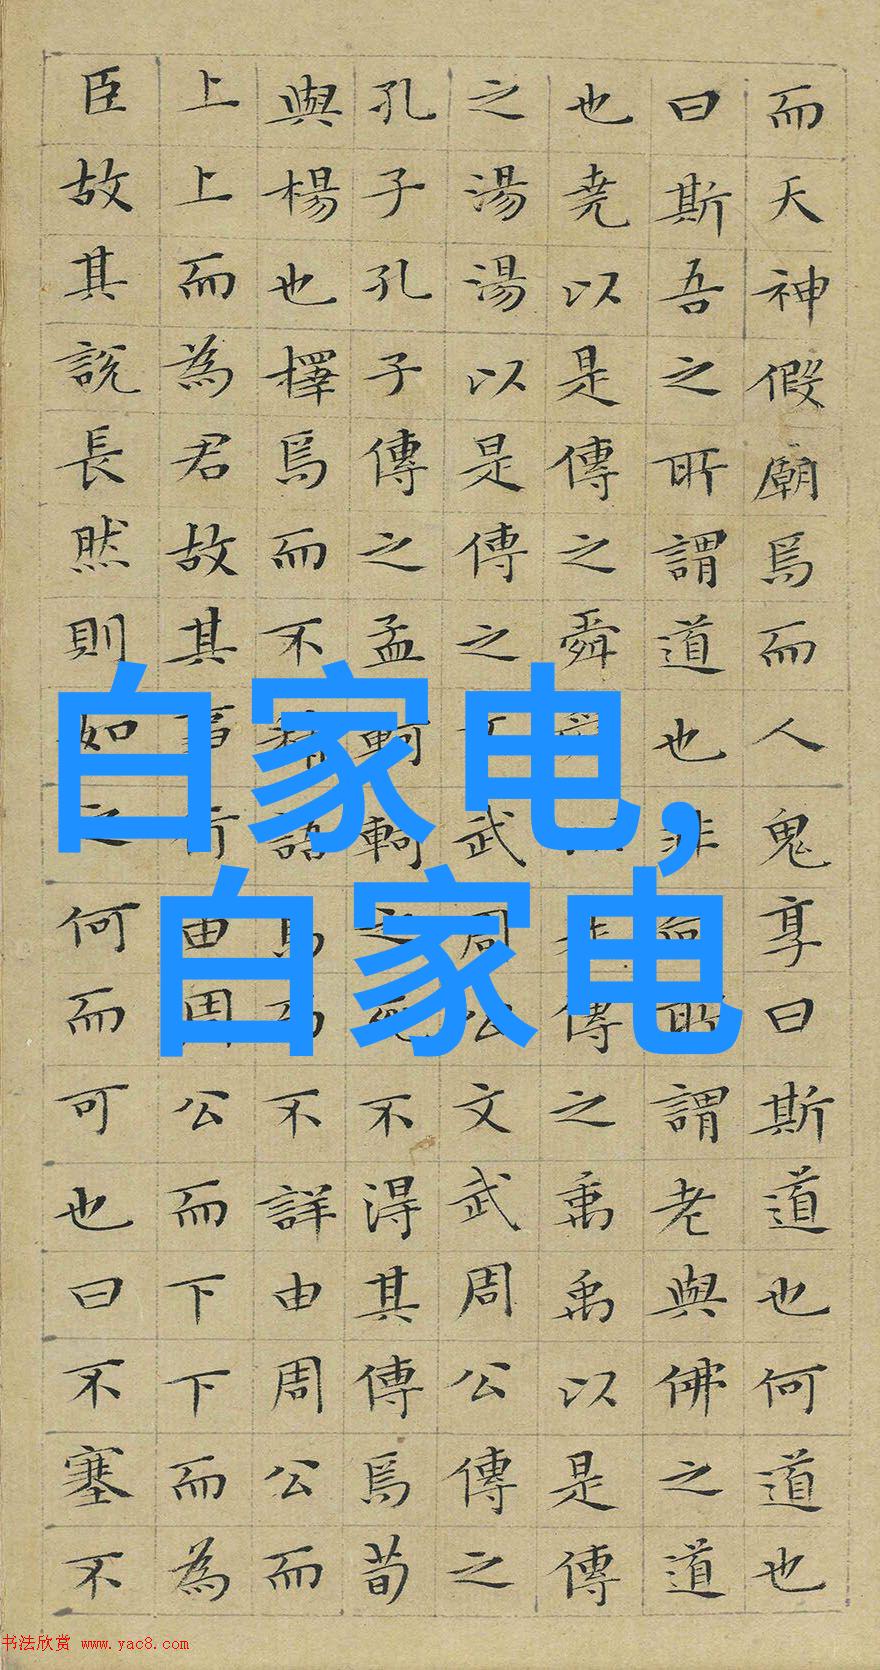 而天神假廟焉而人鬼享曰斯道也何道也
曰斯吾之所謂道也非所謂老與佛之道
也堯以是傳之舜傳之禹禹以是傳
之湯湯以是傳之武周公文武周公傳之
孔子孔子傳之孟軻軻之死不得其傳焉荀
與楊也擇焉而不精語焉而不詳由周公而
上上而為君故其事行由周公而下下而為
臣故其說長然則如之何而可也曰不塞不
白家电,
白家电
书法欣赏 www.yac8.com